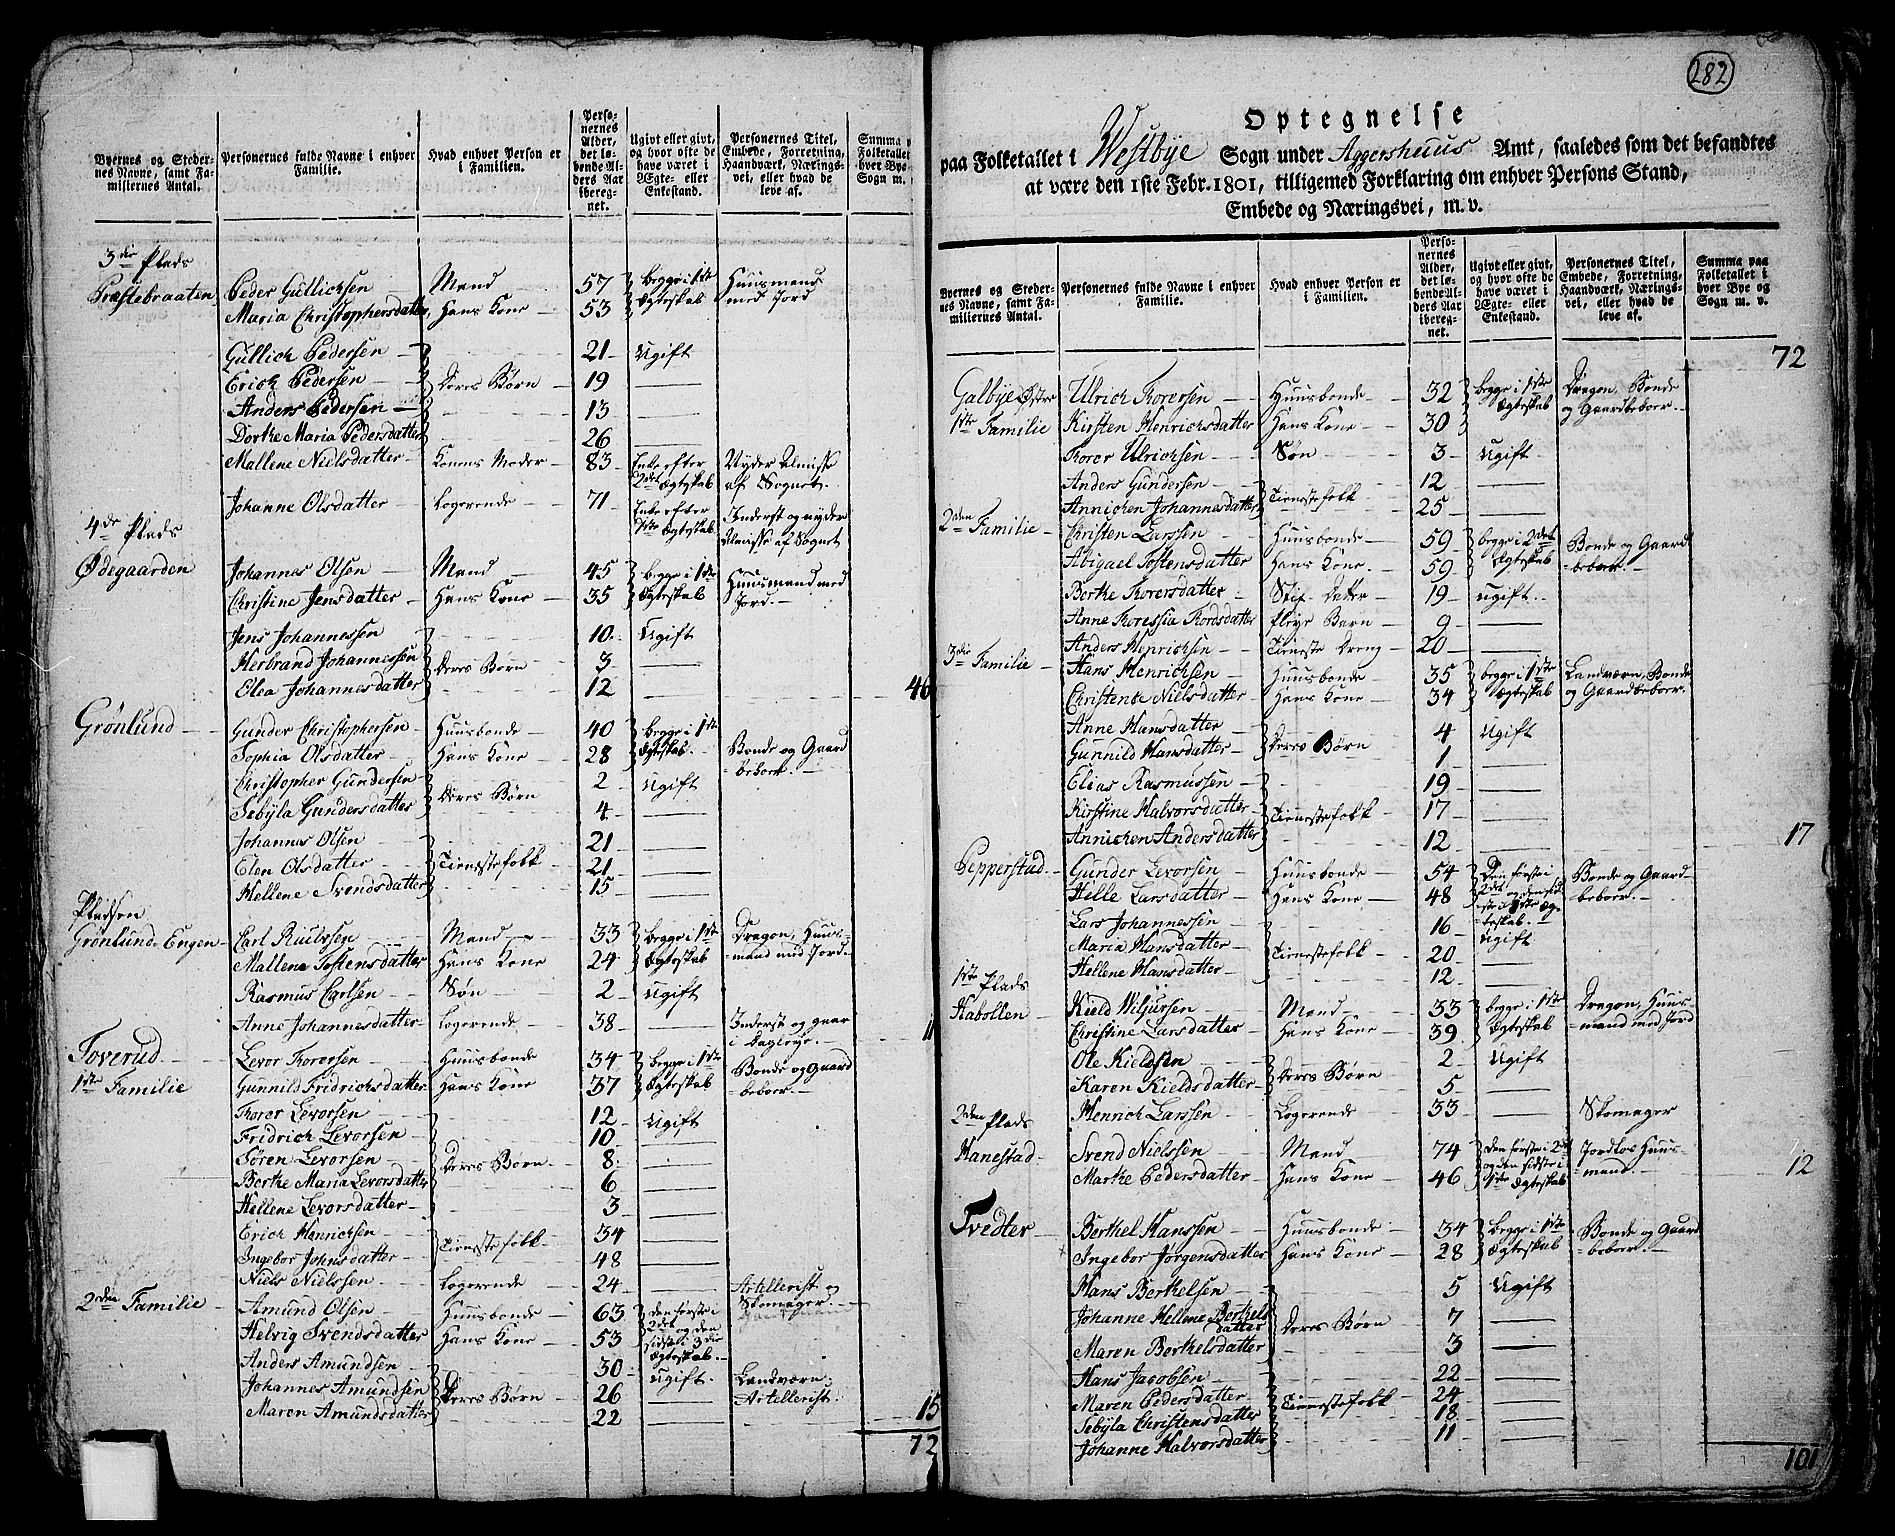 Byernes og Steder-
nes Navne, samt Fa-
miliernes Antal.
Personernes fulde Navne i enhver
Familie.
Hvad enhver Person er
i Familien.
Perso-
nernes
Alder,
det lø-
bende Al-
ders Aar
iberegnet.
Ugivt eller givt,
og hvor ofte de
have været i
Ægte- eller
Enkestand.
Personernes Titel,
Embede, Forretning,
Haandværk, Nærings-
vei, eller hvad de
leve af.
Summa
Folketallet
hver Bye
Sogn m.
3die Plads
Præstebraaten Peder Gullichsen Mand 57 begge i 1ste Huusmand
Maria Christophersdatter Hans Kone 53 Ægteskab med Jord
Gullich Pedersen 21 Ugift
Erich Pedersen Deres Børn 19
Anders Pedersen 13
Dorthe Maria Pedersdatter 26
Mallene Nielsdatter Konens Moder 83 Enke efter 2det Ægteskab Nyder Almisse af Sognet
Johanne Olsdatter Logerende 71 Enke efter 1ste Ægteskab Inderst og nyder Almisse af Sognet
4de Plads
Ødegaarden Johannes Olsen Mand 45 begge i 1ste Huusmand med
Christine Jensdatter Hans Kone 35 Ægteskab Jord
Jens Johannessen 10 Ugift
Herbrand Johannessen Deres Børn 3
Olea Johannesdatter 12 46
Grønlund Gunder Christophersen Huusbonde 40 begge i 1ste
Sophia Olsdatter Hans Kone 28 Ægteskab Bonde og Gaard
beboer
Christopher Gundersen 2 Ugift
Sebÿla Gundersdatter Deres Børn 4
Johannes Olsen 21
Elen Olsdatter Tienestefolk 21
Hellene Svendsdatter 15
Pladsen
Grønlunds Engen Carl Ruulssen Mand 33 begge i 1ste Dragon, Huus-
Mallene Tostensdatter Hans Kone 24 Ægteskab mand med Jord
Rasmus Carlsen Søn 2 Ugift
Anne Johannesdatter Logerende 38 Inderst og gaar i Dagleye 11
Toverud Levor Torersen Huusbonde 34 begge i 1ste
1ste Familie Gunnild Fridrichsdatter Hans Kone 37 Ægteskab Bonde og Gaard
beboer
Thoror Levorsen 12 Ugift
Fridrich Levorsen 10
Søren Levorsen Deres Børn 8
Berthe Maria Levorsdatter 6
Hellene Levorsdatter 3
Erich Henrichsen Tienestefolk 34
Ingebor Johnsdatter 48
Niels Nielssen Logerende 24 Artillerist og Skomager
2den Familie Amund Olsen Huusbonde 63 den første i
Helvig Svendsdatter Hans Kone 53 2det og den sidste i 3die Ægteskab
Anders Amundsen 30 ugift Landværn
Johannes Amundsen Deres Børn 26 Artillerist
Maren Amundsdatter 22 15
72
282
Optegnelse
paa Folketallet i Westbye Sogn under Aggershuus Amt, saaledes som det befandtes
at være den 1ste Febr. 1801, tilligemed Forklaring om enhver Persons Stand,
Embede og Næringsvei, m. v.
Byernes og Steder-
nes Navne, samt Fa-
miliernes Antal.
Personernes fulde Navne i enhver
Familie.
Hvad enhver Person er
i Familien.
Perso-
nernes
Alder,
det lø-
bende Al-
ders Aar
ibereg-
net.
Ugivt eller givt,
og hvor ofte de
have været i
Ægte- eller
Enkestand.
Personernes Titel,
Embede, Forretning,
Haandværk, Nærings-
vei, eller hvad de
leve af.
Summa paa
Folketallet i
hver Bye og
Sogn m. v.
72
Galbÿe Østre Ulrich Torersen Huusbonde 32 begge i 1ste Dragon, Bonde
1ste Familie Kirsten Henrichsdatter Hans Kone 30 Ægteskab og Gaardbeboer
Toror Ulrichsen Søn 3 Ugift
Anders Gundersen 12
Annichen Johannesdatter Tienestefolk 25
2den Familie Christen Larssen Huusbonde 59 begge i 2det Bonde og Gaard
Abigael Tostensdatter Hans Kone 59 Ægteskab beboer
Berthe Torersdatter Stif Datter 19 ugift
Anne Toressia Tordsdatter Pleye Barn 9
Anders Henrichsen Tieneste Dreng 20
3die Familie Hans Henrichsen Huusbonde 35 begge i 1ste Landværn, Bonde
Christence Nielsdatter Hans Kone 34 Ægteskab og Gaardbeboer
Anne Hansdatter 4 Ugift
Gunnild Hansdatter Deres Børn 1
Elias Rasmussen 19
Kirstine Halvorsdatter Tienestefolk 17
Annichen Andersdatter 12 17
Pepperstad Gunder Levorsen Huusbonde 54 Den første i Bonde og Gaard
Helle Larsdatter Hans Kone 48 2det og den sid-
ste i 1ste Æg-
teskab beboer
Lars Johannessen 16 ugift
Maria Hansdatter Tienestefolk 20
Hellene Hansdatter 12
1ste Plads
Kabollen Kield Wiljursen Mand 33 begge i 1ste Dragon, Huus-
Christine Larsdatter Hans Kone 39 Ægteskab mand med Jord
Ole Kieldsen 2 Ugift
Karen Kieldsdatter Deres Børn 5
2den Plads Henrich Larssen Logerende 33 Skomager
Hanestad Svend Nielssen Mand 74 den første i 2det Jordløs Huus-
Marthe Pedersdatter Hans Kone 46 og den sidste i 1ste Ægteskab mand 12
Tvedter Berthel Hanssen Huusbonde 34 begge i 1ste Bonde og Gaard
Ingebor Jørgensdatter Hans Kone 28 Ægteskab beboer
Hans Berthelsen 5 Ugift
Johanne Hellene Berthels
datter Deres Børn 7
Maren Berthelsdatter 3
Hans Jacobsen 22
Maren Pedersdatter Tienestefolk 24
Sebÿla Christensdatter 18
Johanne Halvorsdatter 11
101